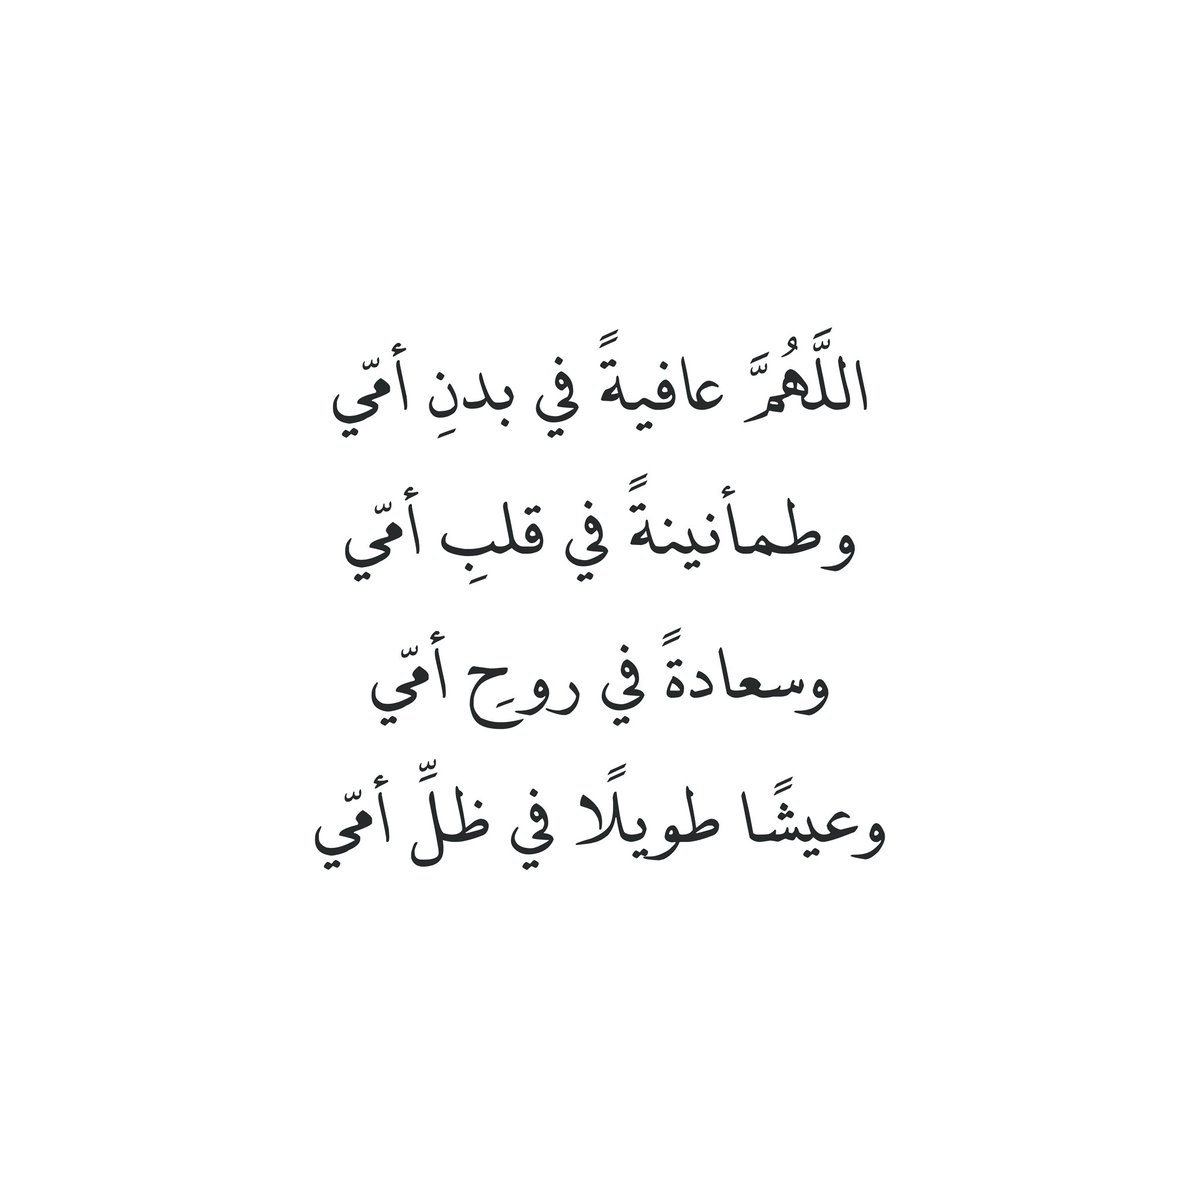 اللَّهُمَّ عافيةً في بدنِ أمّي
وطمأنينةً في قلبِ أمّي
وسعادةً في روحِ أمّي
وعيشًا طويلًا في ظلِّ أمّي